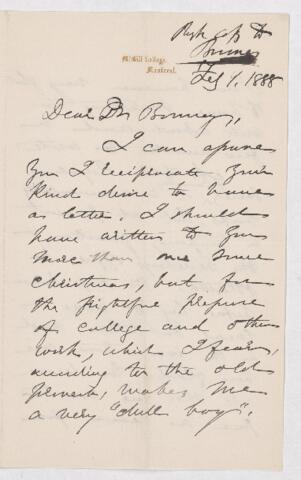 McGill College,
Montreal.
Feby 1, 1888
Dear Dr Bonney,
I can assure
you I reciprocate your
kind desire to
as letter. I should
have written to you
more than once since
Christmas, but for
the frightful pressure
of college and other
work, which I fear,
according to the old
proverb, makes me
a very "dull boy".